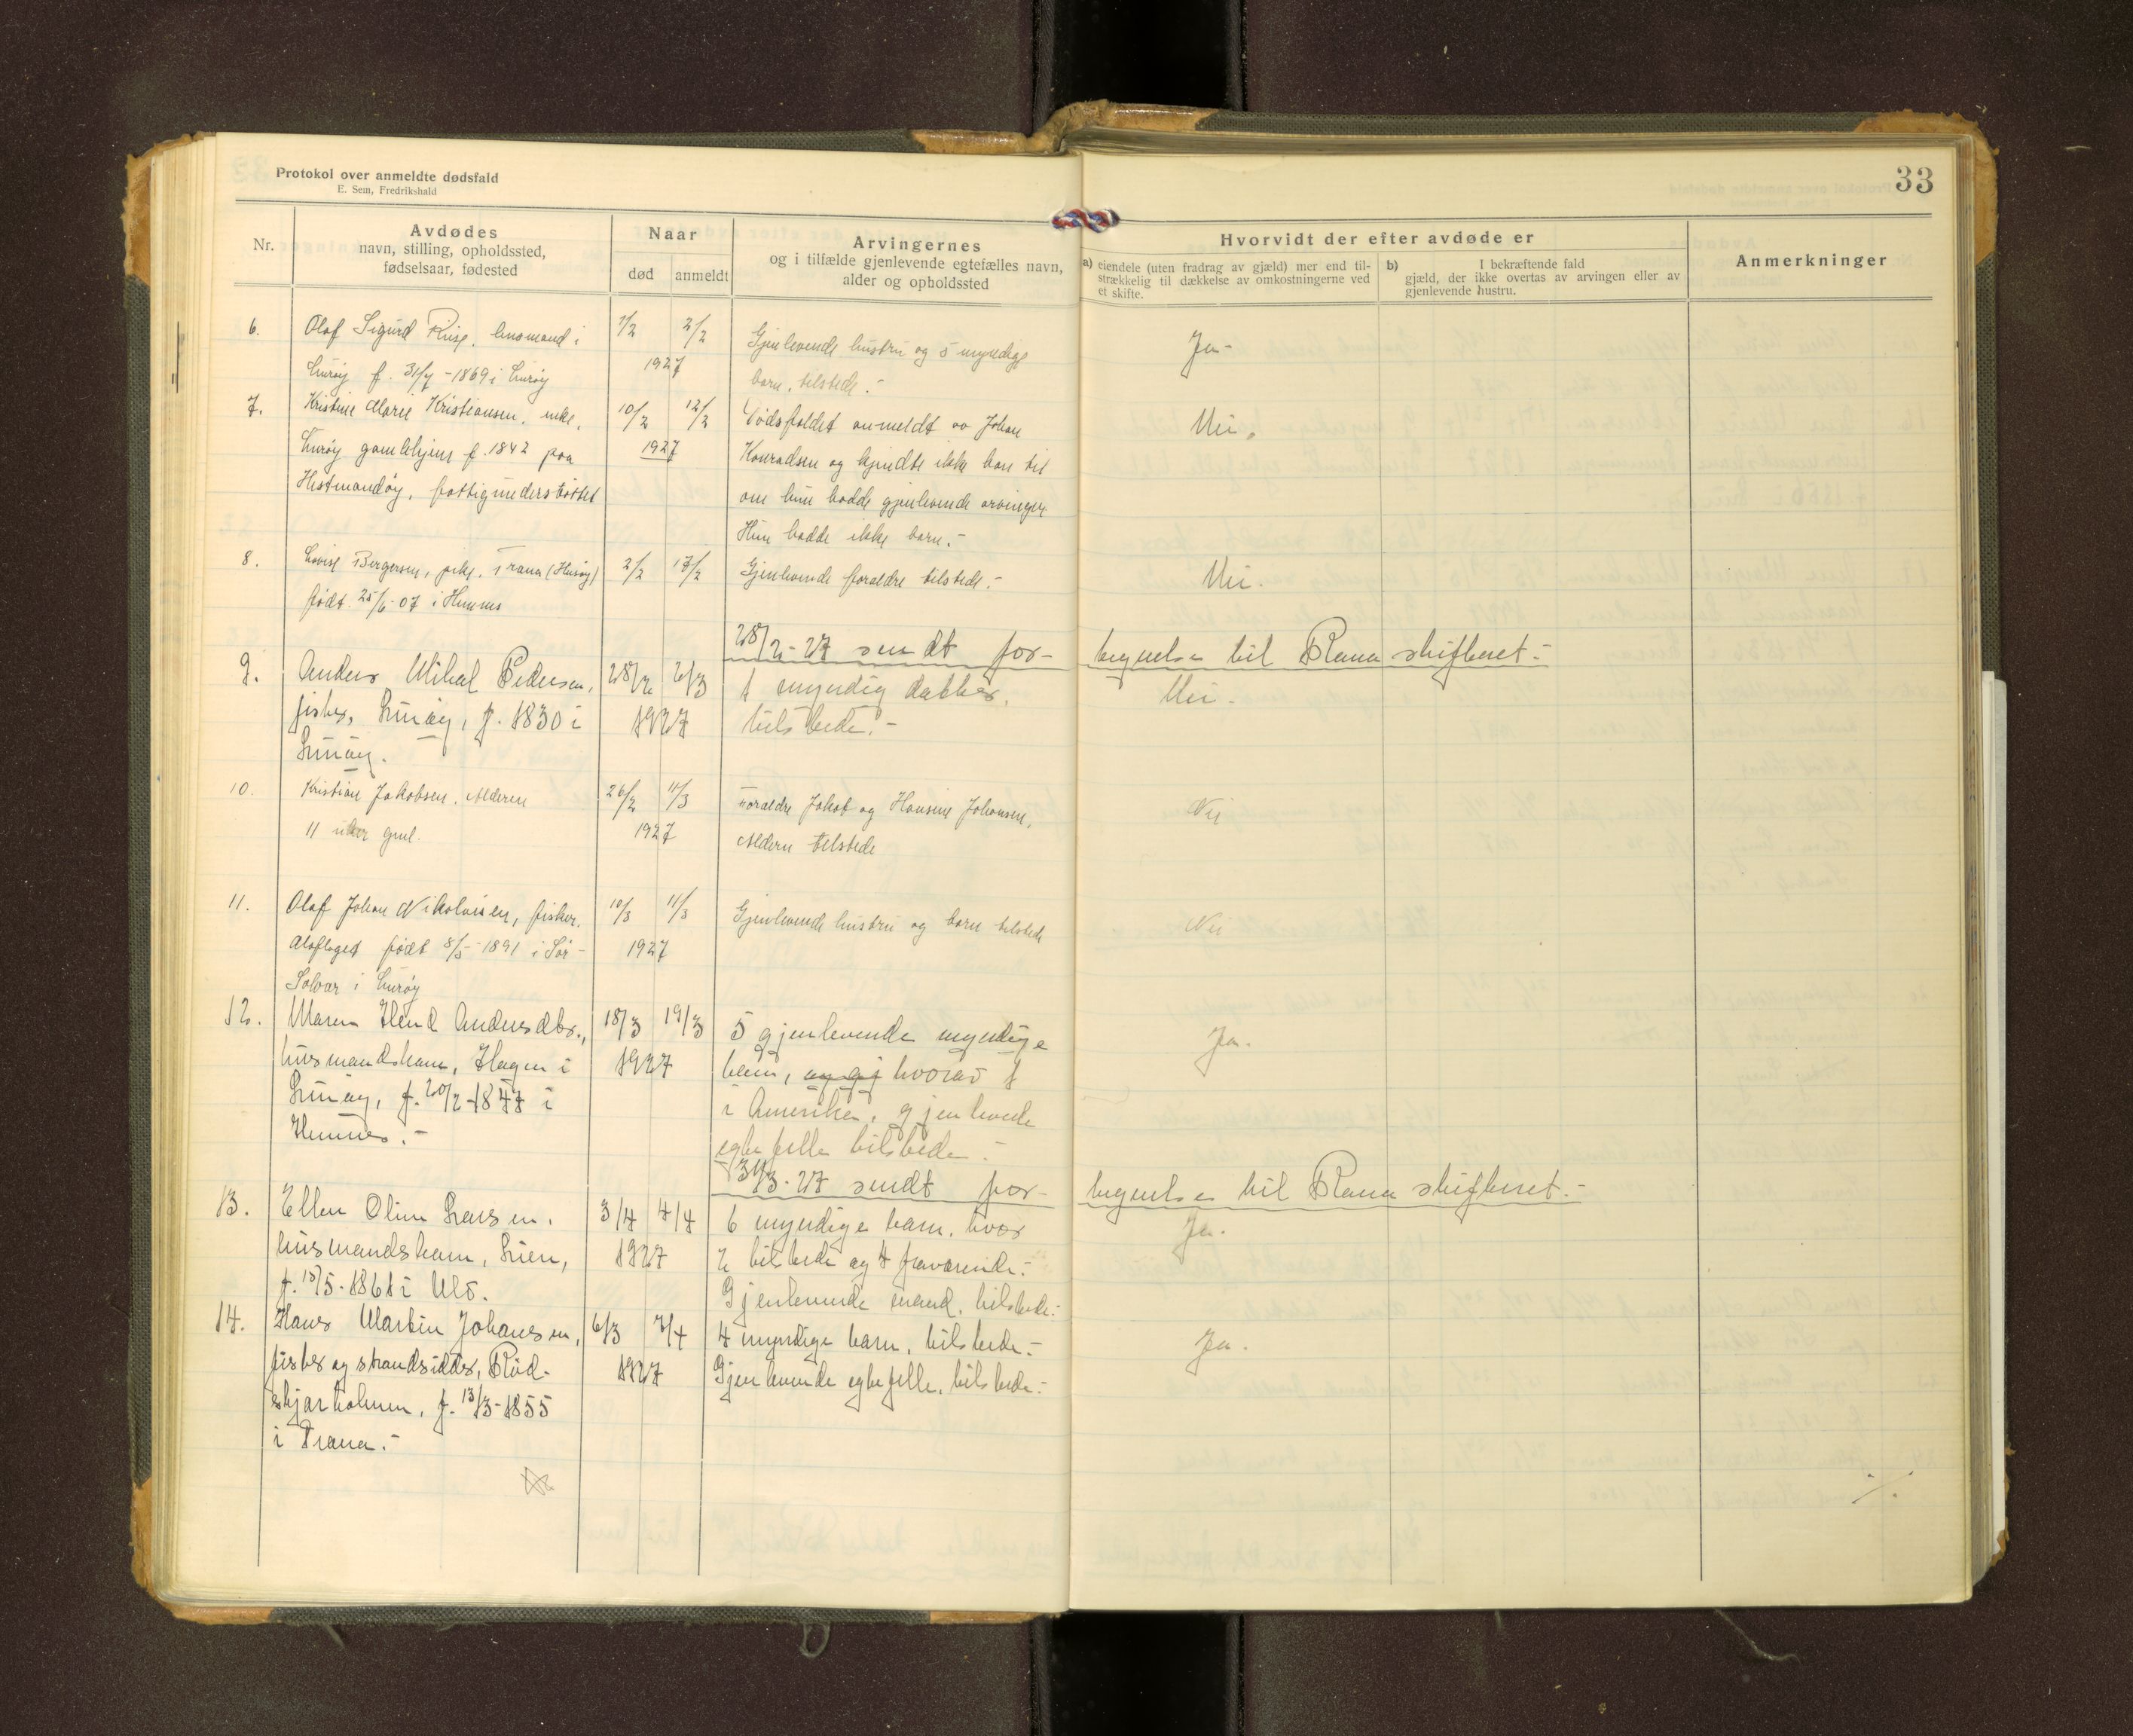 Protokol over anmeldte dødsfald
E. Sem, Fredrikshald
33
Nr.
Avdødes
navn, stilling, opholdssted,
fødselsaar, fødested
Naar
død
anmeldt
Arvingernes
og i tilfælde gjenlevende egtefælles navn,
alder og opholdssted
Hvorvidt der efter avdøde er
a) eiendele (uten fradrag av gjæld) mer end til-
strækkelig til dækkelse av omkostningerne ved
et skifte.
b) I bekræftende fald
gjæld, der ikke overtas av arvingen eller av
gjenlevende hustru.
Anmerkninger
6. Olaf Sigurd Riise, lensmand i 1/2 2/2 Gjenlevende hustru og 5 myndige Ja-
Lurøy f. 31/7-1869 i Lurøy 1927 barn, tilstede.-
7. Kristine Marie Kristiansen, enke, 10/2 12/2 Dødsfaldet anmeldt av Johan Nei.
Lurøy gamlehjem f. 1842 paa 1927 Konradsen og kjendte ikke han til
Hestmandøy, fattigunderstøttet om hun hadde gjenlevende arvinger.
Hun hadde ikke barn.-
8. Lovise Bergersen, pike, Træna (Husøy) 2/2 17/2 Gjenlevende foreldre tilstede.- Nei.
født 25/6-07 i Hemnes
28/2-27 sendt for-tegnelse til Rana skifteret.-
9. Anders Mikal Pedersen, 28/2 2/3 1 myndig datter, Nei.
fisker, Lurøy, f. 1830 i 1927 tilstede.-
Lurøy.
10. Kristian Jakobsen, Alderen 26/2 11/3 Foreldre Jakob og Hansine Johansen, Nei
11 uker gml. 1927 Alderen tilstede
11. Olaf Johan Nikolaisen, fisker. 10/3 11/3 Gjenlevende hustru og barn tilstede Nei
Alaflaget født 8/5-1891 i Sør- 1927
Solvær i Lurøy
12. Maren Elend Andersdtr., 18/3 19/3 5 gjenlevende myndige Ja.
husmandskone, Hagen i 1927 barn, og gj hvorav 1
Lurøy, f. 20/2-1847 i i Amerika, gjenlevende
Hemnes.- egtefelle tilstede.-
31/3-27 sendt for-tegnelse til Rana skifteret.-
13. Ellen Oline Larsen, 3/4 4/4 6 myndige barn, hvor Ja.
husmandskone, Lien, 1927 2 tilstede og 4 fraværende.-
f. 18/5-1861 i Ulv. Gjenlevende mand, tilstede.-
14. Hans Martin Johansen, 6/3 7/4 4 myndige barn, tilstede.- Ja.
fisker og strandsidder, Rød- 1927 Gjenlevende egtefelle, tilstede.-
skjærholmen, f. 13/3-1855
i Træna.-